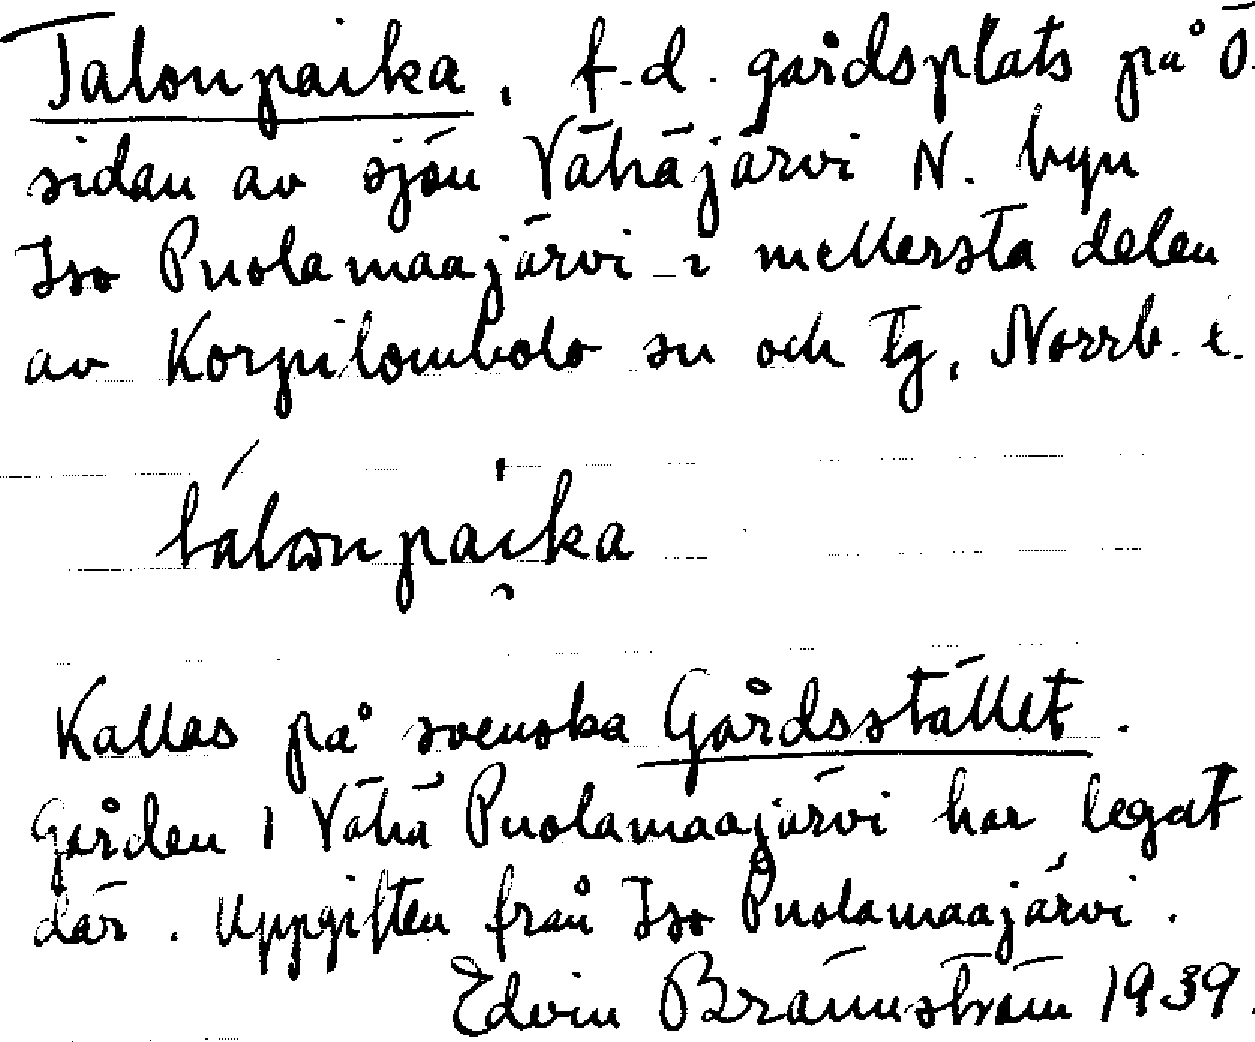 Talonpaika, f.d. gårdsplats på Ö.
sidan av sjön Vähäjärvi N. byn
Iso Puolamaajärvi i mellersta delen
av Korpilombolo sn och tg, Norrb. l.
tálonpai̯ka
Kallas på svenska Gårdsstället.
Gården i Vähä Puolamaajärvi har legat
där. Uppgiften från Iso Puolamaajärvi.
Edvin Brännström 1939.